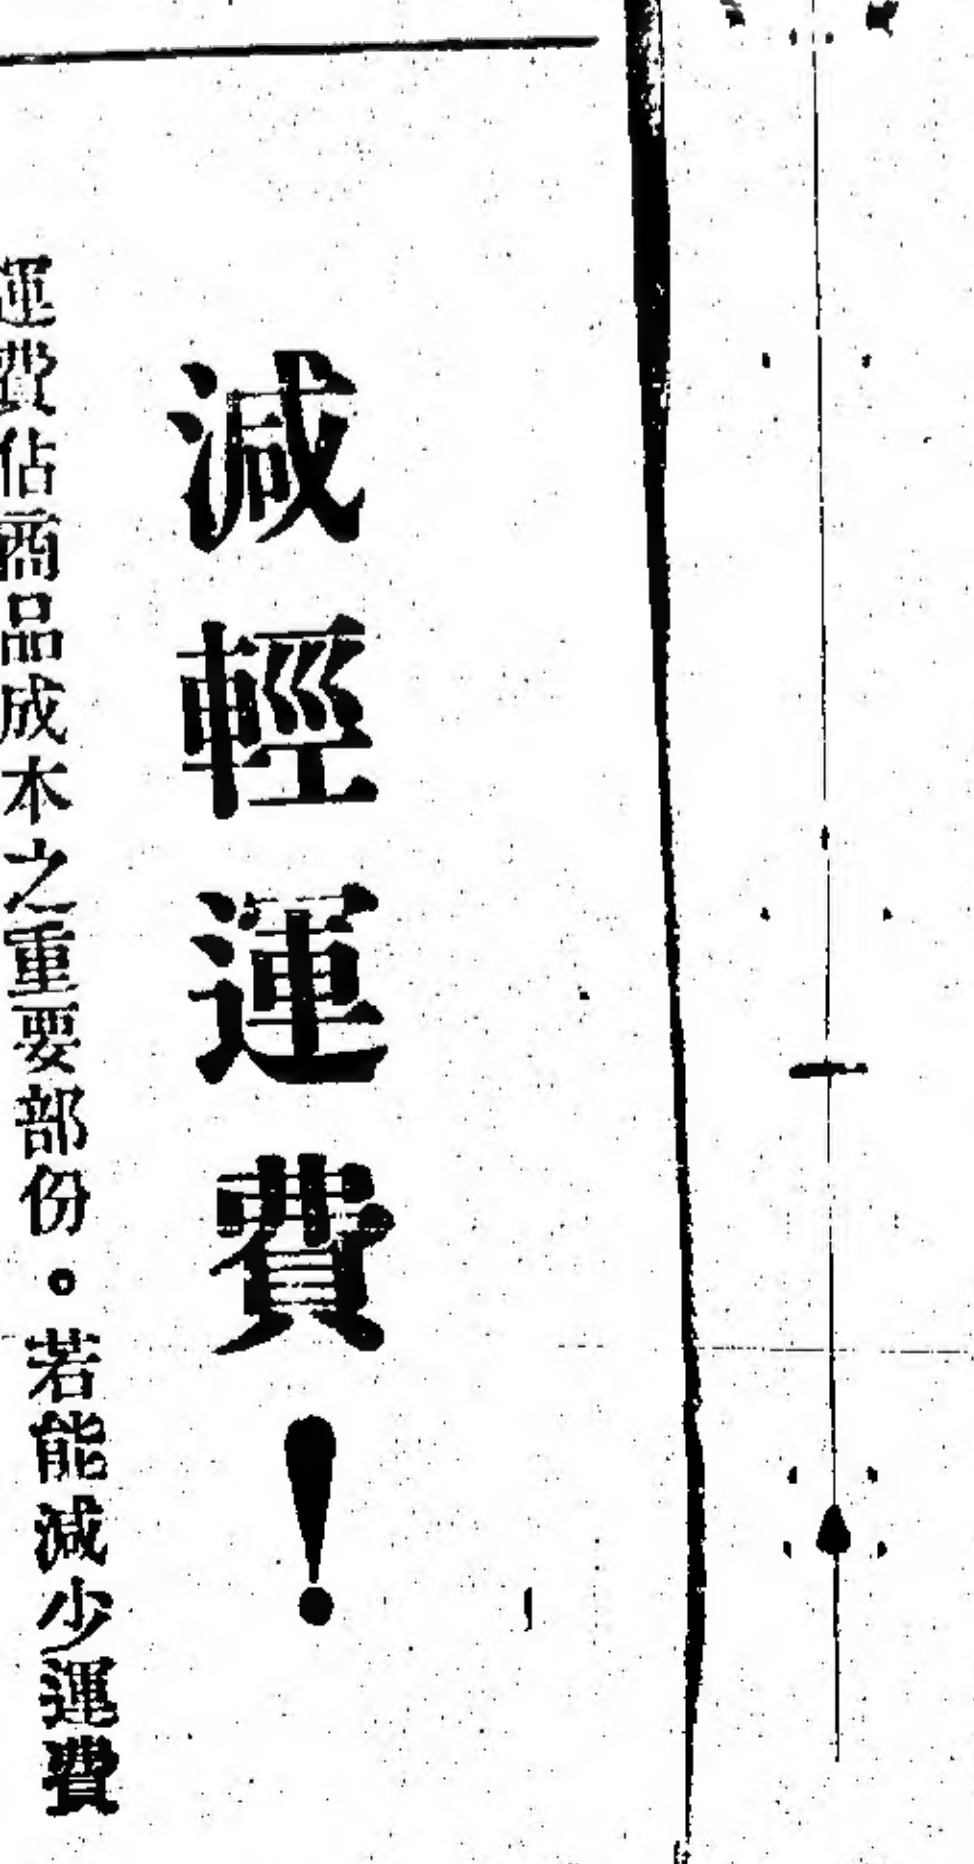 減輕運費！
運費佔商品成本之重要部份。若能減少運費